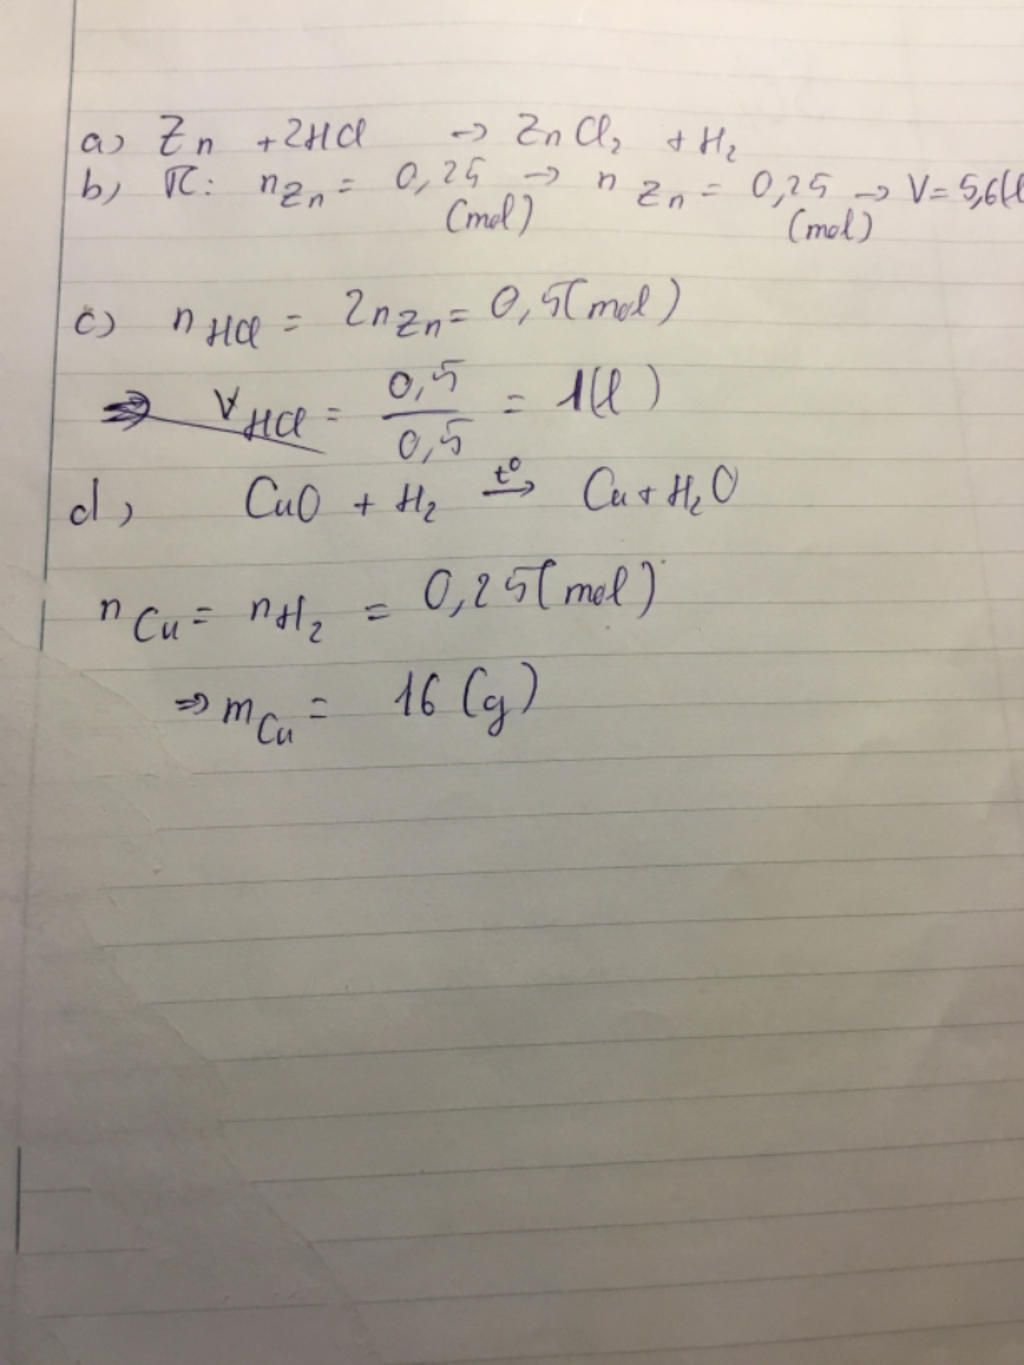 a) Zn + 2HCl → ZnCl₂ + H₂
b) TC: nZn = 0,25 → nZn = 0,25 → V = 5,6(l
(mol) (mol)
c) nHCl = 2nZn = 0,5(mol)
⇒ VHCl = 0,5/0,5 = 1(l)
d) CuO + H₂ t⁰→ Cu + H₂O
nCu = nH₂ = 0,25(mol)
⇒ mCu = 16(g)